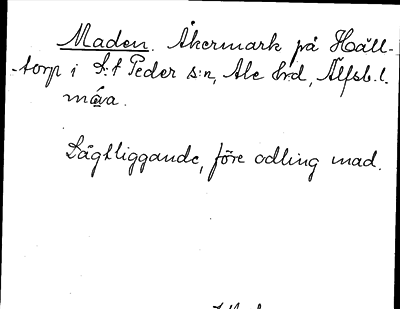 Maden. Åkermark på Håll-
-torp i S:t Peder s:n, Ale hrd, Älfsb. l.
måva.
Lågtliggande, före odling mad.